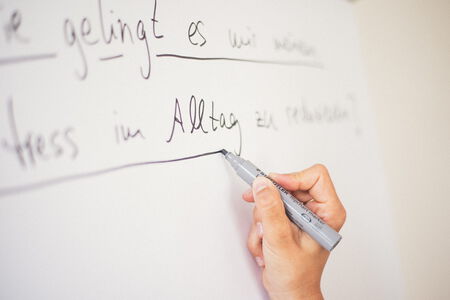 ie gelingt es mir meinen
tress im Alltag zu reduzieren?